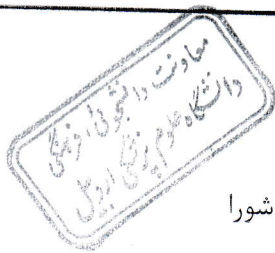 معاونت دانشجوئی، فرهنگی
دانشگاه علوم پزشکی اردبیل
شورا